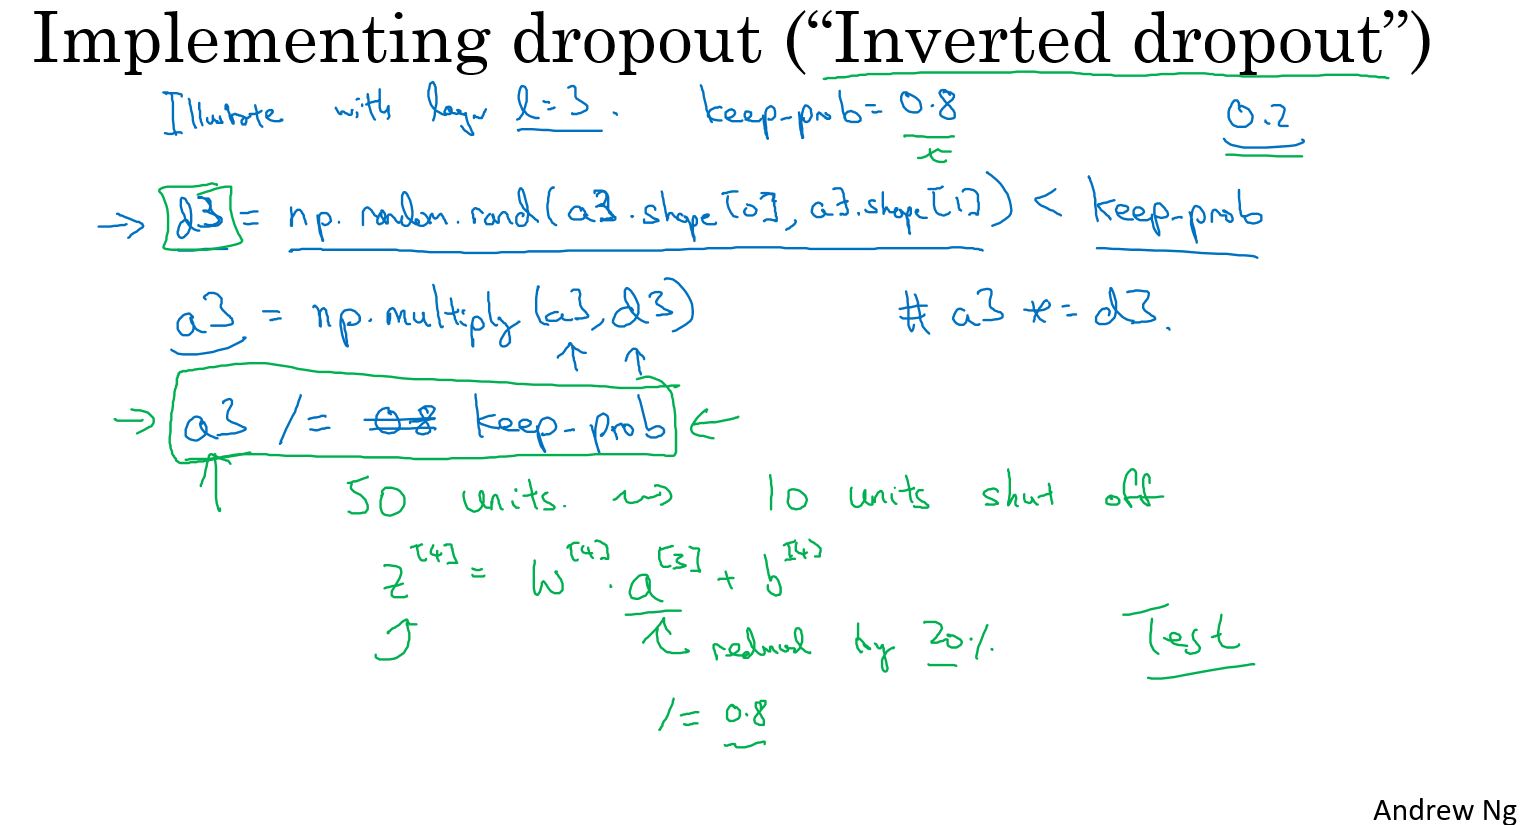 Implementing dropout (“Inverted dropout”)
Illustrate with layer l=3. keep-prob= 0.8 0.2
→ d3 = np.random.rand(a3.shape[0], a3.shape[1]) < keep-prob
a3 = np.multiply(a3, d3) # a3 *= d3.
→ a3 /= 0.8 keep-prob ←
50 units. ⇝ 10 units shut off
z^[4] = W^[4] · a^[3] + b^[4]
reduced by 20%
Test
/= 0.8
Andrew Ng